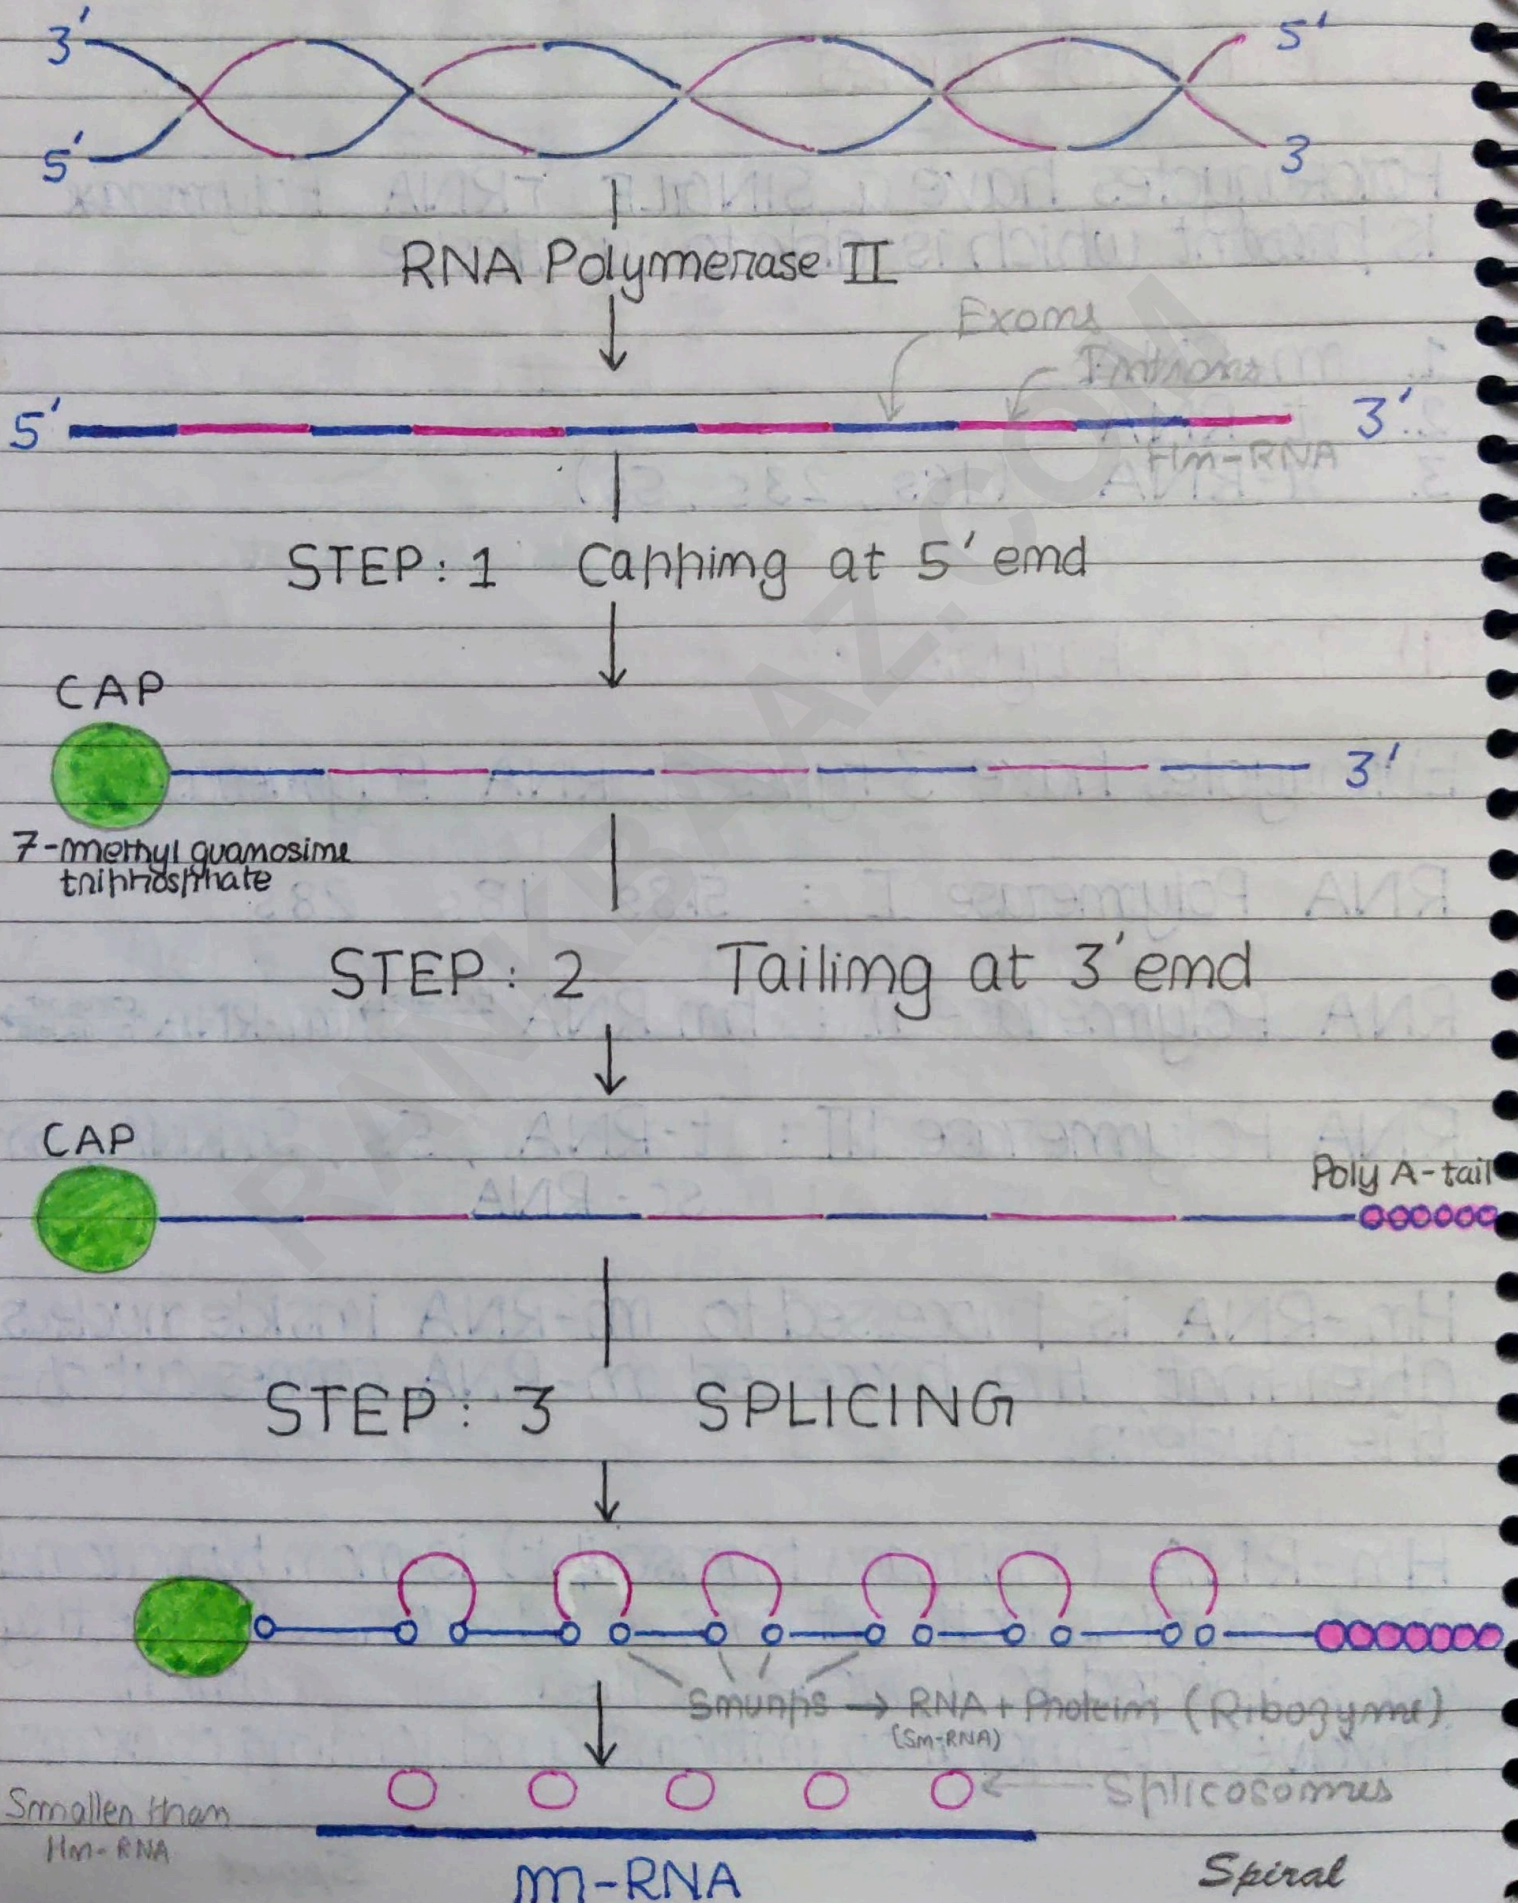 3′ 5′
5′ 3
RNA Polymerase II
Exons
Introns
5′ 3′
Hn-RNA
STEP: 1 Capping at 5′ end
CAP
3′
7-methyl guanosine
triphosphate
STEP: 2 Tailing at 3′ end
CAP
Poly A-tail
STEP: 3 SPLICING
Snurps → RNA + Protein (Ribozyme)
(Sn-RNA)
Splicosomes
Smaller than
Hn-RNA
m-RNA
Spiral
RANKBAAZ.COM